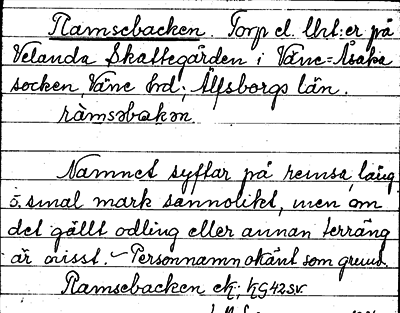 Ramsebacken. Torp el. lht:er på
Velanda Skattegården i Väne-Åsaka
socken, Väne hd; Älfsborgs län.
ràmsəbakən.
Namnet syftar på remsa, lång
o. smal mark sannolikt, men om
det gällt odling eller annan terräng
är ovisst. – Personnamn okänt som grund.
Ramsebacken ek; KG42SV